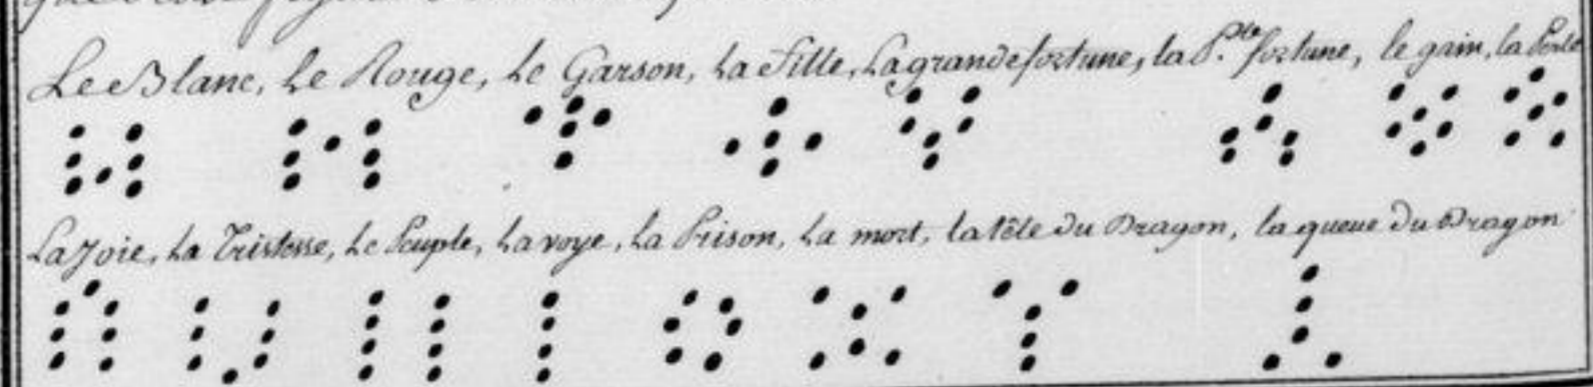 Le Blanc, Le Rouge, Le Garson, La fille, La grande fortune, la P.te fortune, le gain, la Perte
La Joie, La Tristesse, Le Peuple, La voye, La Prison, La mort, la tête du Dragon, la queue du Dragon